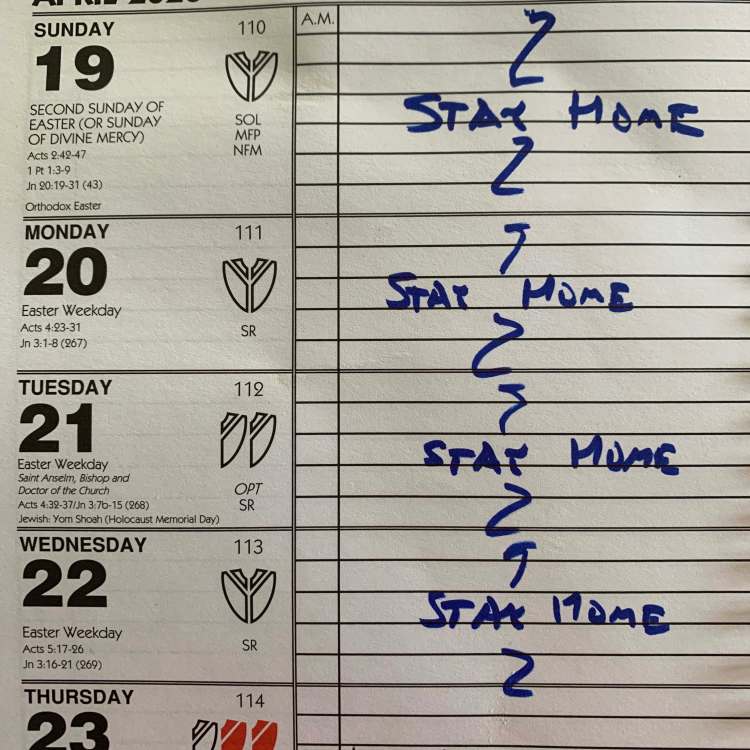 SUNDAY 110 A.M.
19
SECOND SUNDAY OF
EASTER (OR SUNDAY
OF DIVINE MERCY)
Acts 2:42-47
1 Pt 1:3-9
Jn 20:19-31 (43)
Orthodox Easter
SOL
MFP
NFM
STAY HOME
MONDAY 111
20
Easter Weekday
Acts 4:23-31
Jn 3:1-8 (267)
SR
STAY HOME
TUESDAY 112
21
Easter Weekday
Saint Anselm, Bishop and
Doctor of the Church
Acts 4:32-37/Jn 3:7b-15 (268)
Jewish: Yom Shoah (Holocaust Memorial Day)
OPT
SR
STAY HOME
WEDNESDAY 113
22
Easter Weekday
Acts 5:17-26
Jn 3:16-21 (269)
SR
STAY HOME
THURSDAY 114
23